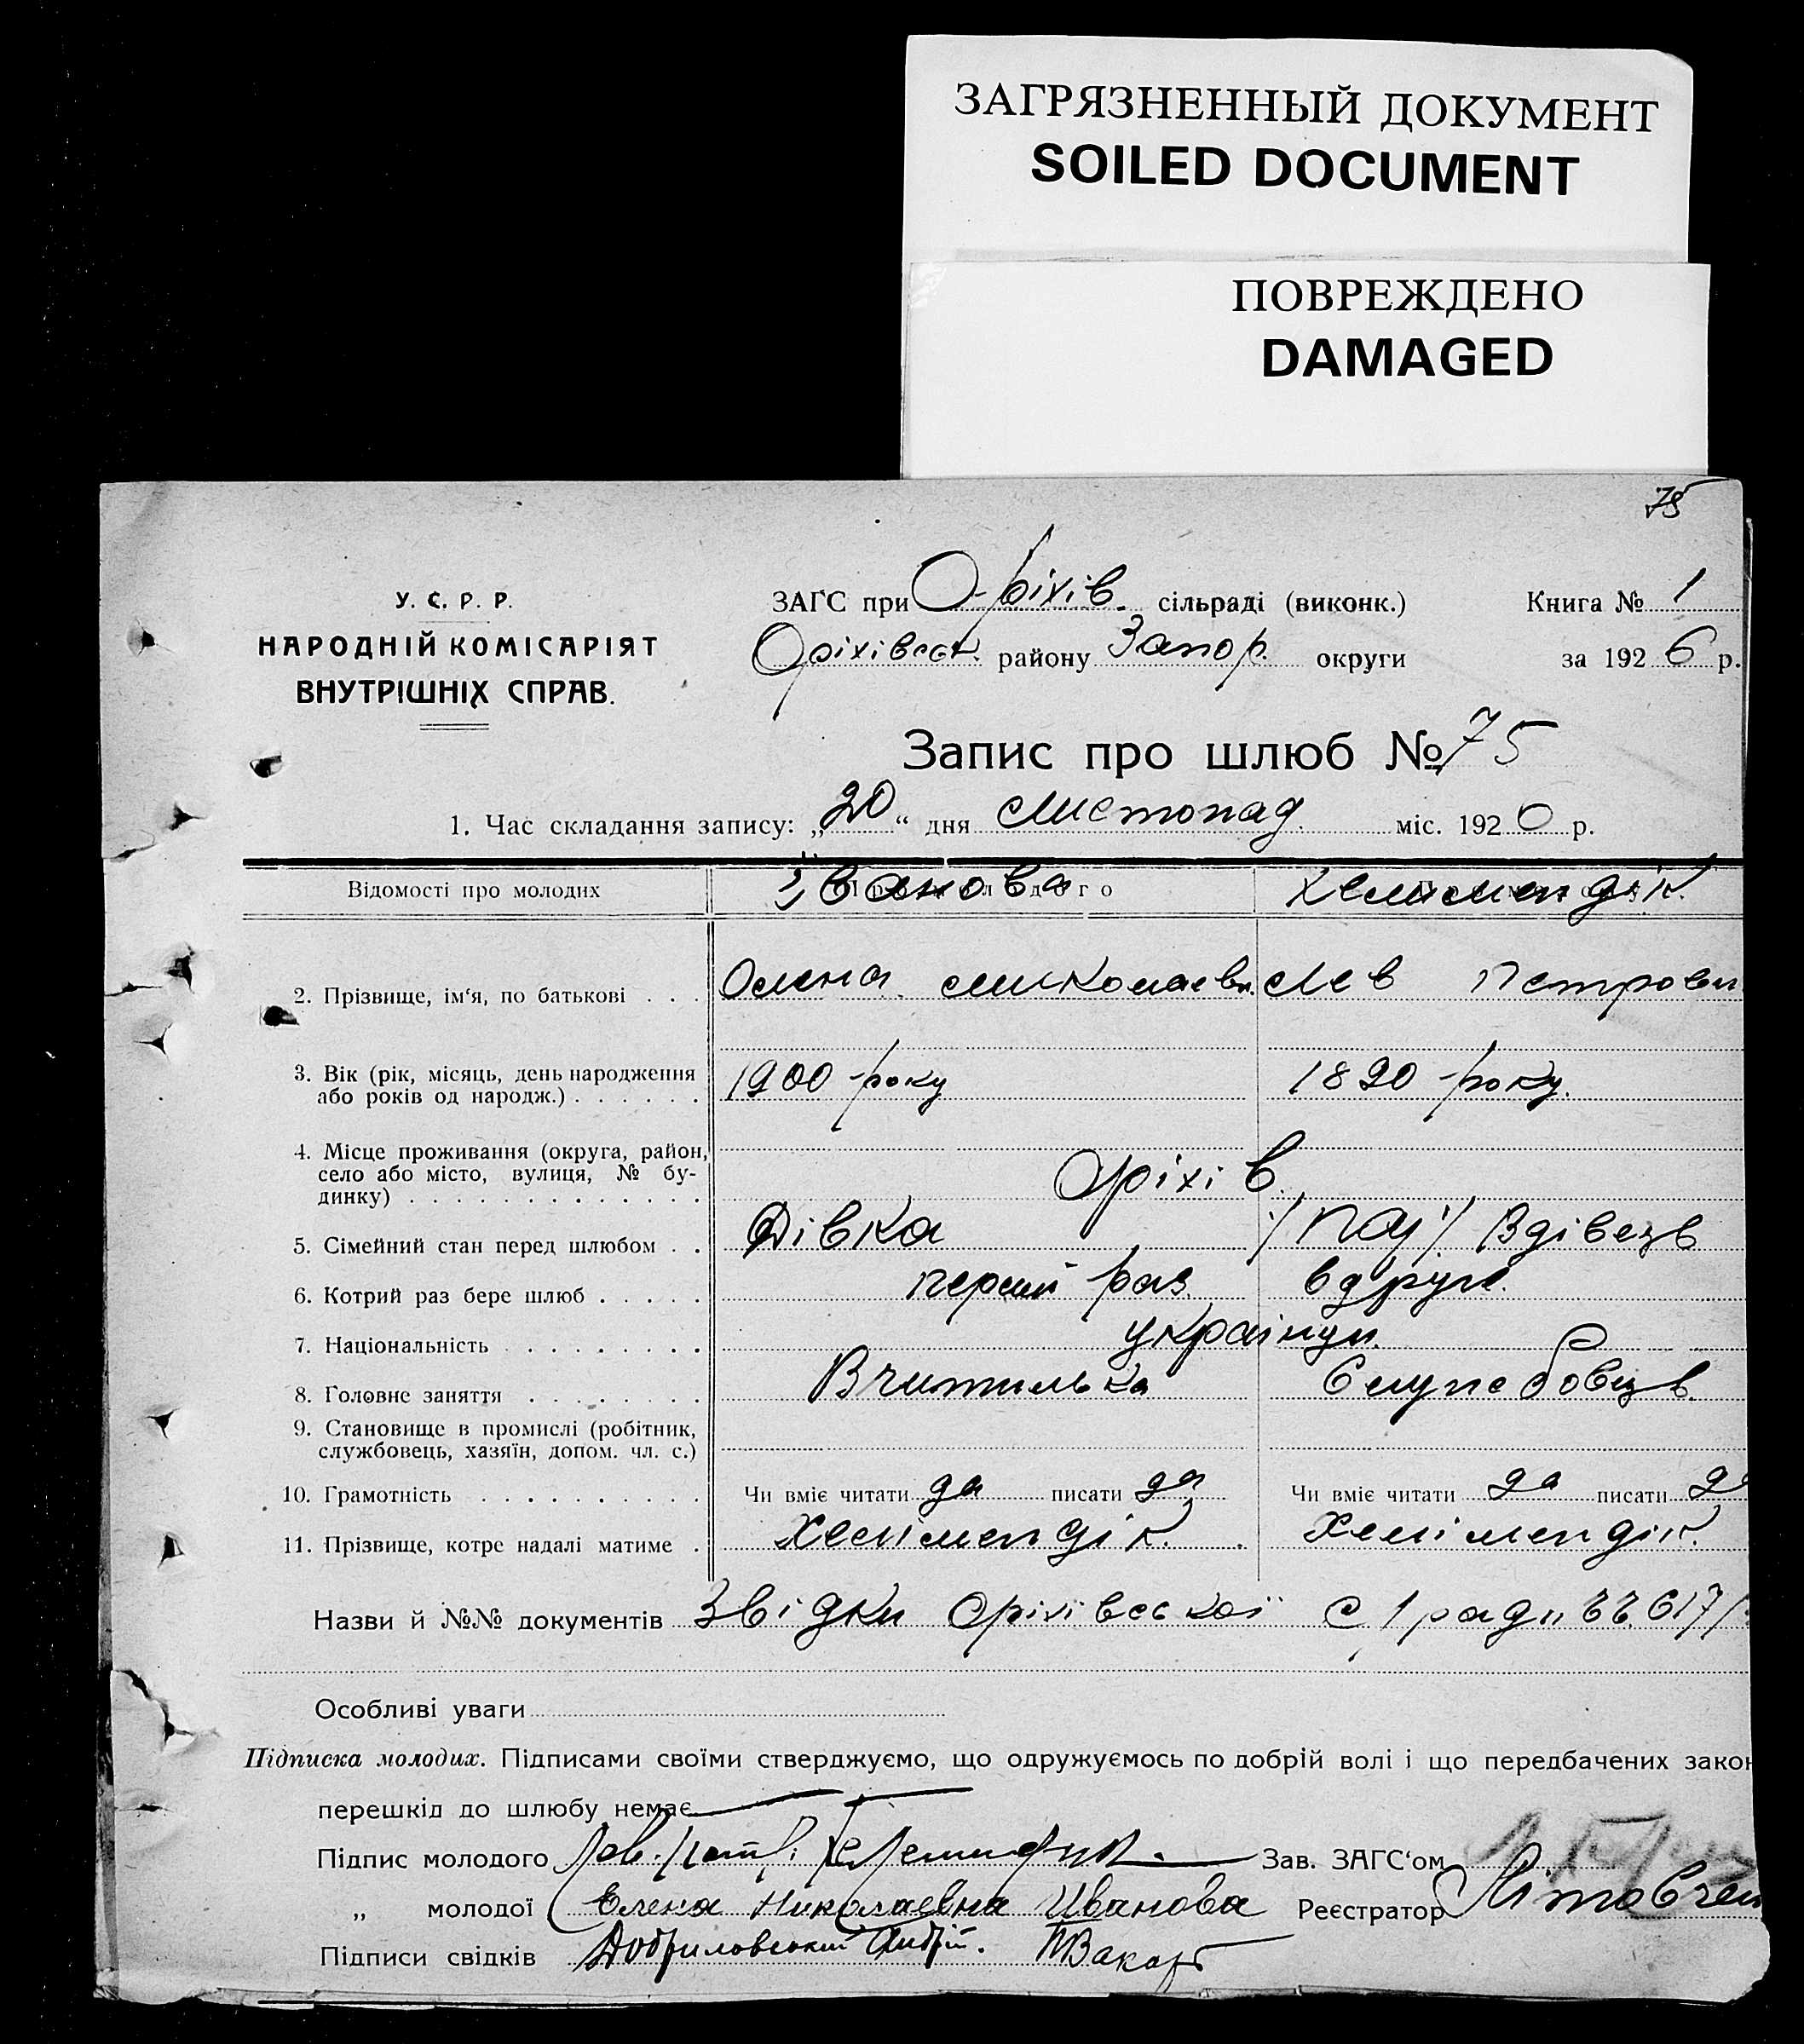 ЗАГРЯЗНЕННЫЙ ДОКУМЕНТ
SOILED DOCUMENT
ПОВРЕЖДЕНО
DAMAGED
75
У. С. Р. Р.
НАРОДНІЙ КОМІСАРІЯТ
ВНУТРІШНІХ СПРАВ.
ЗАГС при Оріхів. сільраді (виконк.) Книга № 1
Оріхівськ. району Запор. округи за 1926 р.
Запис про шлюб № 75
1. Час складання запису: „20“ дня Листопад. міс. 1920 р.
Відомості про молодих Іванова Хелимендік.
2. Прізвище, ім‘я, по батькові . . . Олена Миколаевн. Лев Петрови
3. Вік (рік, місяць, день народження 1900 - року 1890 - року.
або років од народж.) . . . . . .
4. Місце проживання (округа, район,
село або місто, вулиця, № бу- Оріхів.
динку) . . . . . . . . . . . .
5. Сімейний стан перед шлюбом . . Дівка Вдівець
6. Котрий раз бере шлюб . . . . . перший раз вдруге.
7. Національність . . . . . . . . українци.
8. Головне заняття . . . . . . . Вчителька Службовець
9. Становище в промислі (робітник,
службовець, хазяїн, допом. чл. с.)
10. Грамотність . . . . . . . . . Чи вміє читати да писати да Чи вміє читати да писати да
11. Прізвище, котре надалі матиме . Хелімендік. Хелімендік.
Назви й №№ документів Звідки Оріхівської с/ради 617/
Особливі уваги
Підписка молодих. Підписами своїми стверджуємо, що одружуємось по добрій волі і що передбачених закон
перешкід до шлюбу немає
Підпис молодого Лев. Петр. Хелемендик. Зав. ЗАГС‘ом
„ молодої Елена Николаевна Иванова Реєстратор Літовчен
Підписи свідків Добриловський Андрій. Вакар